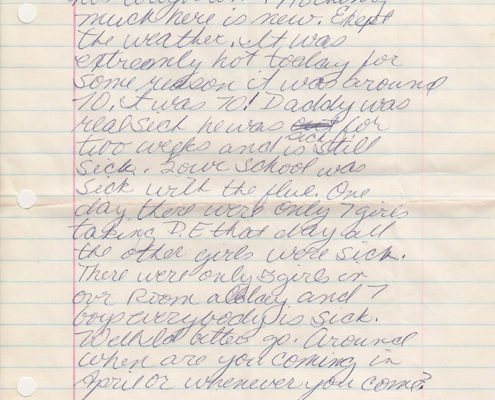 much here is new. Exept
the weather. It was
extreemly hot today for
some reason it was around
70. It was 70! Daddy was
real sick he was out for
sick
two weeks and is still
sick. Our school was
sick with the flue. One
day there were only 7 girls
taking P.E that day all
the other girls were sick.
There were only 3 girls in
our room all day and 7
boys everybody is sick.
Well Id better go. Around
when are you coming in
April or whenever you come?